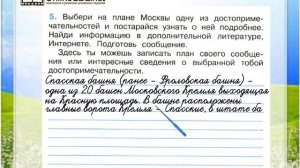 5. Выбери на плане Москвы одну из достоприме-
чательностей и постарайся узнать о ней подробнее.
Найди информацию в дополнительной литературе,
Интернете. Подготовь сообщение.
Здесь ты можешь записать план своего сообще-
ния или интересные сведения о выбранной тобой
достопримечательности.
Спасская башня (ранее - Фроловская башня) -
одна из 20 башен Московского Кремля выходящая
на Красную площадь. В башне расположены
главные ворота Кремля - Спасские, в шатре ба